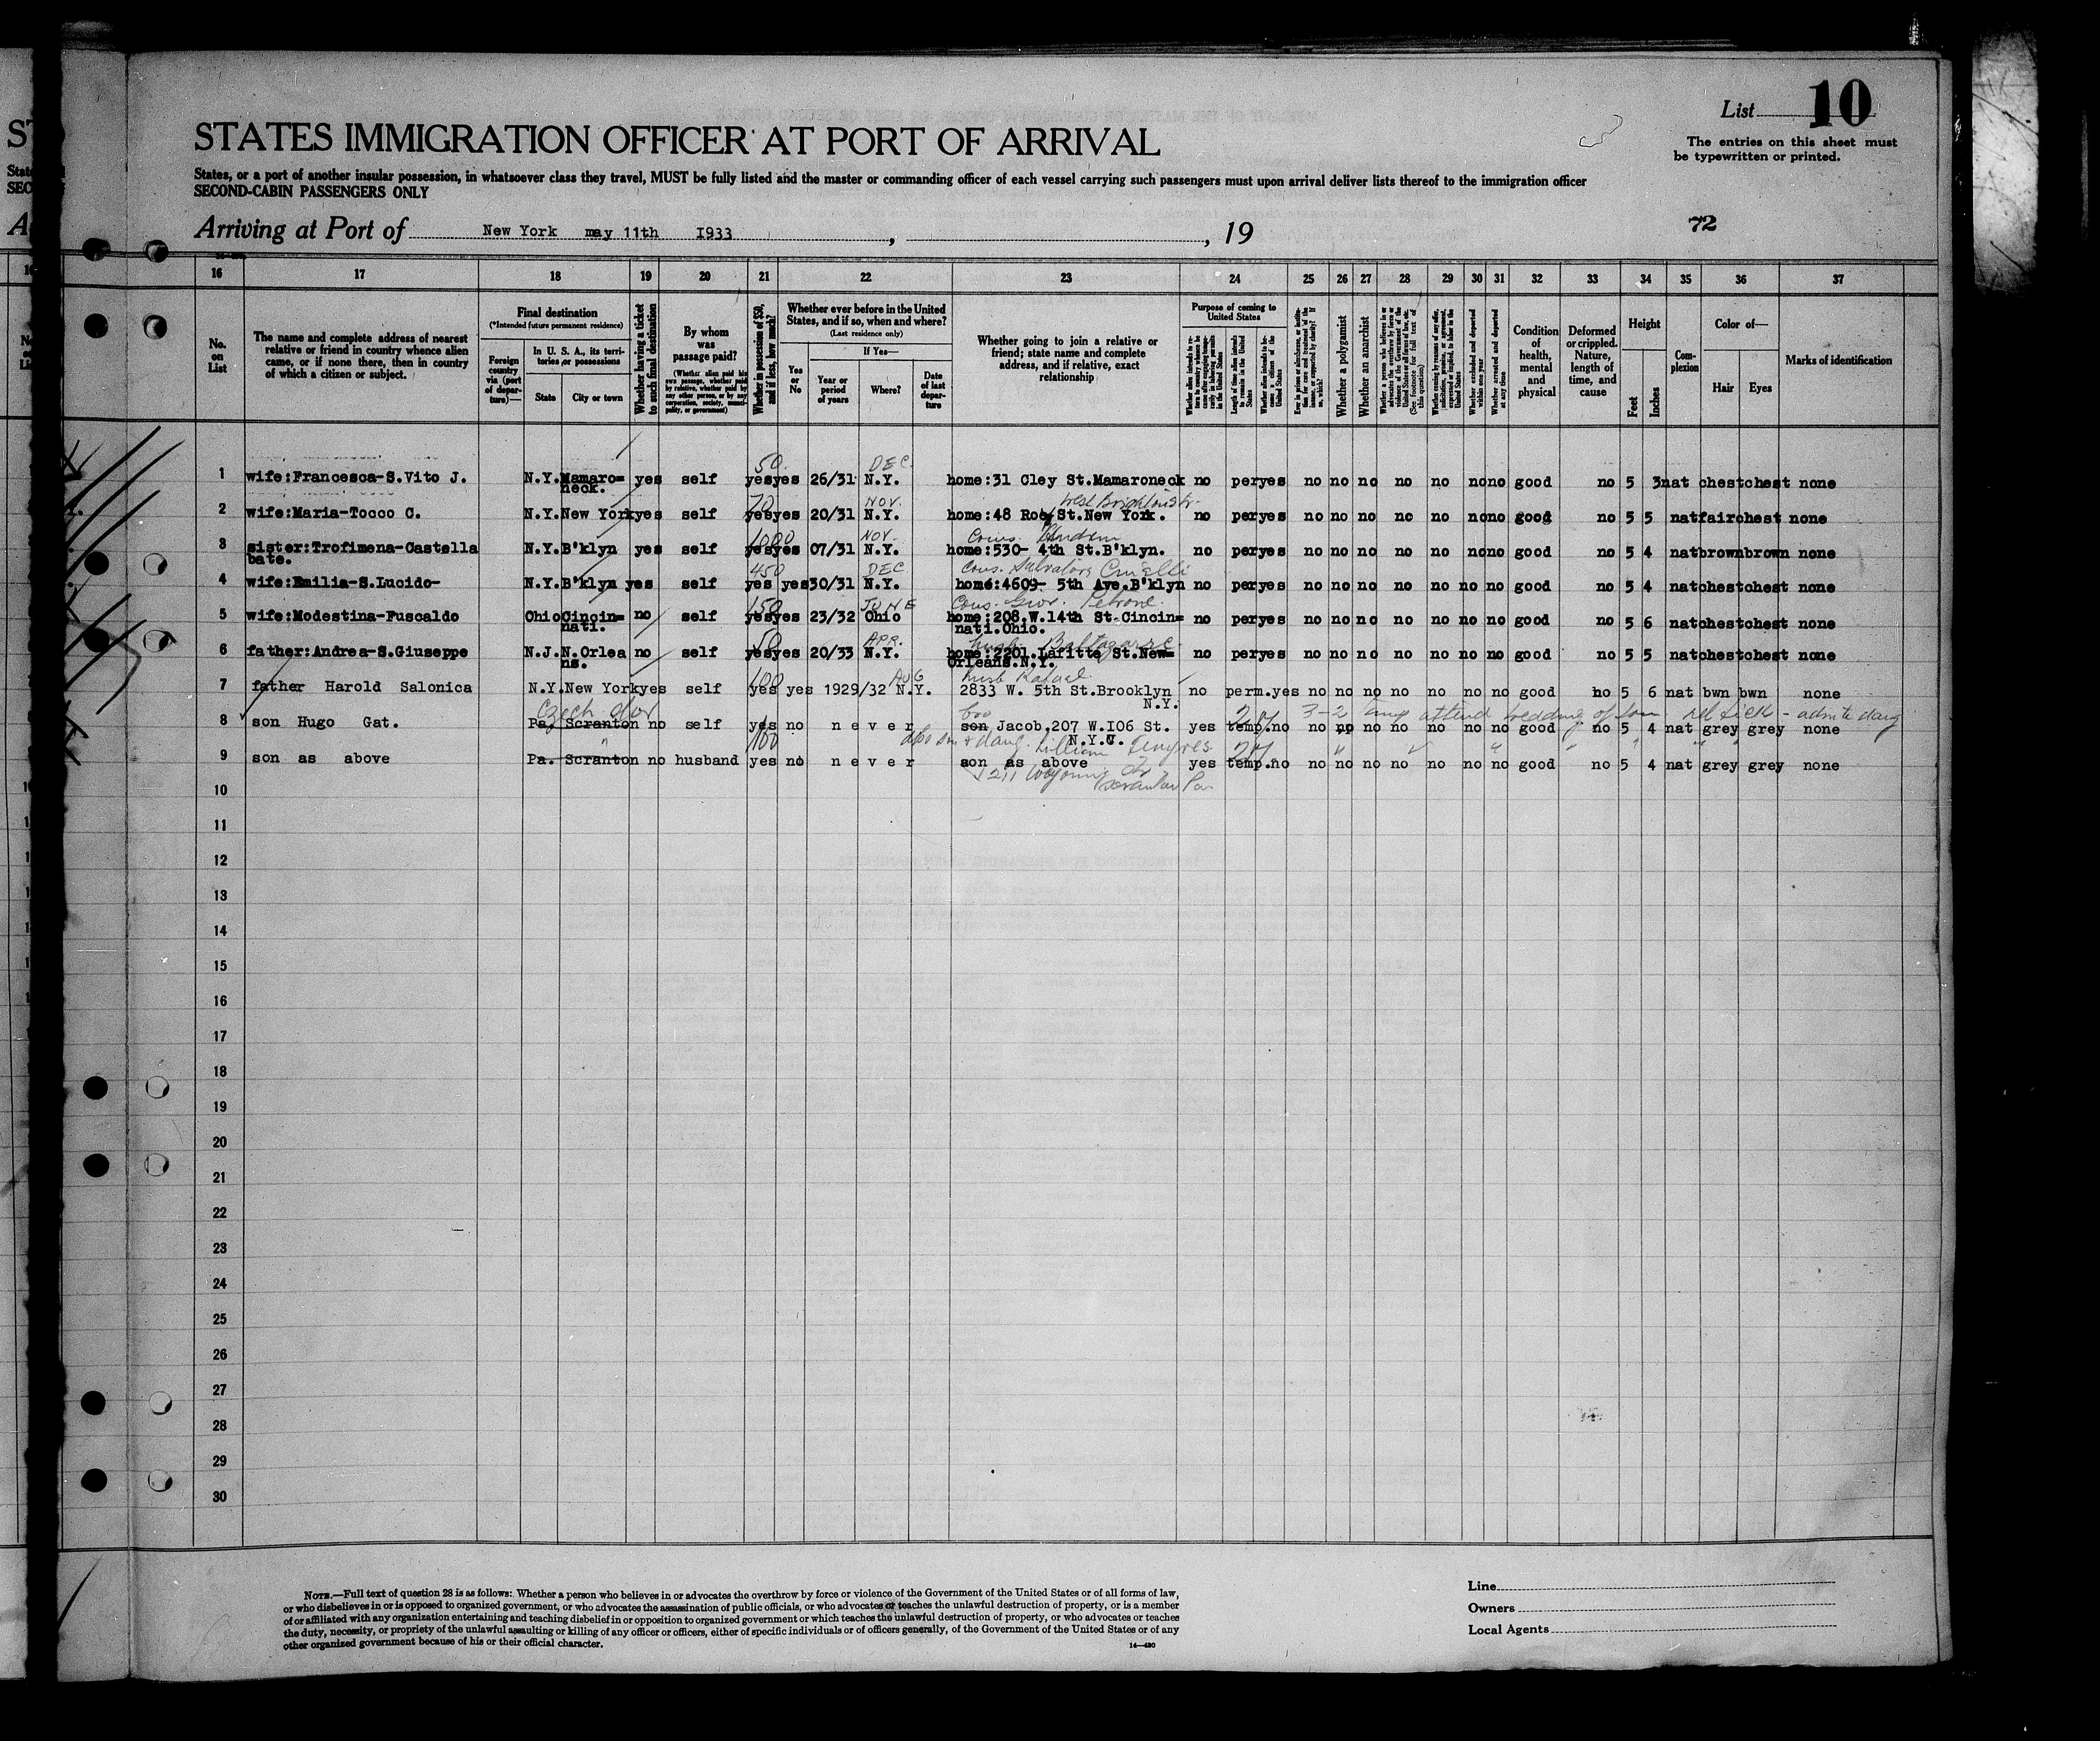 List 10
The entries on this sheet must
be typewritten or printed.
STATES IMMIGRATION OFFICER AT PORT OF ARRIVAL
States, or a port of another insular possession, in whatsoever class they travel, MUST be fully listed and the master or commanding officer of each vessel carrying such passengers must upon arrival deliver lists thereof to the immigration officer
SECOND-CABIN PASSENGERS ONLY
Arriving at Port of New York may 11th I933, , 19
72
16 17 18 19 20 21 22 23 24 25 26 27 28 29 30 31 32 33 34 35 36 37
No. on List
The name and complete address of nearest relative or friend in country whence alien came, or if none there, then in country of which a citizen or subject.
Final destination
(*Intended future permanent residence)
Foreign country via (port of departure)—
In U. S. A., its territories or possessions
State
City or town
Whether having a ticket to such final destination
By whom was passage paid?
(Whether alien paid his own passage, whether paid by relative, whether paid by any other person, or by any corporation, society, municipality, or government)
Whether in possession of $50, and if less, how much?
Whether ever before in the United States, and if so, when and where?
(Last residence only)
Yes or No
If Yes—
Year or period of years
Where?
Date of last departure
Whether going to join a relative or friend; state name and complete address, and if relative, exact relationship
Purpose of coming to United States
Length of time alien intends to remain in the United States
Whether a polygamist
Whether an anarchist
Condition of health, mental and physical
Deformed or crippled. Nature, length of time, and cause
Height
Feet
Inches
Complexion
Color of—
Hair
Eyes
Marks of identification
50 DEC
1 wife:Francesca-S.Vito J. N.Y. Mamaro=neck. yes self yes yes 26/31 N.Y. home:31 Cley St.Mamaroneck no per yes no no no no no no no good no 5 3 nat chest chest none
70 NOV.
2 wife:Maria-Tocco C. N.Y. New York yes self yes yes 20/31 N.Y. home:48 Roe St.New York. no per yes no no no no no no no good no 5 5 nat fair chest none
1000 NOV.
3 sister:Trofimena-Castella bate. N.Y. B'klyn yes self yes yes 07/31 N.Y. home:530- 4th St.B'klyn. no per yes no no no no no no no good no 5 4 nat brown brown none
450 DEC Cous. Salvatore
4 wife:Emilia-S.Lucido- N.Y. B'klyn yes self yes yes 30/31 N.Y. home:4609- 5th Aye.B'klyn no per yes no no no no no no no good no 5 4 nat chest chest none
150 JUNE Cous. Petrone
5 wife:Modestina-Fuscaldo Ohio Cincin=nati. no self yes yes 23/32 Ohio home:208.W.14th St.Cincin=nati.Ohio. no per yes no no no no no no no good no 5 6 nat chest chest none
50 APR.
6 father:Andrea-S.Giuseppe N.J. N.Orlea ns. no self yes yes 20/33 N.Y. home:2201.Lafitte St.New=Orleans.N.Y. no per yes no no no no no no no good no 5 5 nat chest chest none
100 AUG husb Rafael
7 father Harold Salonica N.Y. New York yes self yes yes 1929/32 N.Y. 2833 W. 5th St.Brooklyn N.Y. no perm. yes no no no no no no no good no 5 6 nat bwn bwn none
3-2 attend wedding of son
8 son Hugo Gat. Pa. Scranton no self yes no never son Jacob,207 W.I06 St. N.Y.C. yes temp. no no no no no no no no good no 5 4 nat grey grey none
100 daug. Lillian
9 son as above Pa. Scranton no husband yes no never son as above yes temp. no no no no no no no no good no 5 4 nat grey grey none
1211 Wyoming
Scranton Pa.
10
11
12
13
14
15
16
17
18
19
20
21
22
23
24
25
26
27
28
29
30
NOTE.—Full text of question 28 is as follows: Whether a person who believes in or advocates the overthrow by force or violence of the Government of the United States or of all forms of law,
or who disbelieves in or is opposed to organized government, or who advocates the assassination of public officials, or who advocates or teaches the unlawful destruction of property, or is a member
of or affiliated with any organization entertaining and teaching disbelief in or opposition to organized government or which teaches the unlawful destruction of property, or who advocates or teaches
the duty, necessity, or propriety of the unlawful assaulting or killing of any officer or officers, either of specific individuals or of officers generally, of the Government of the United States or of any
other organized government because of his or their official character.
14—480
Line
Owners
Local Agents